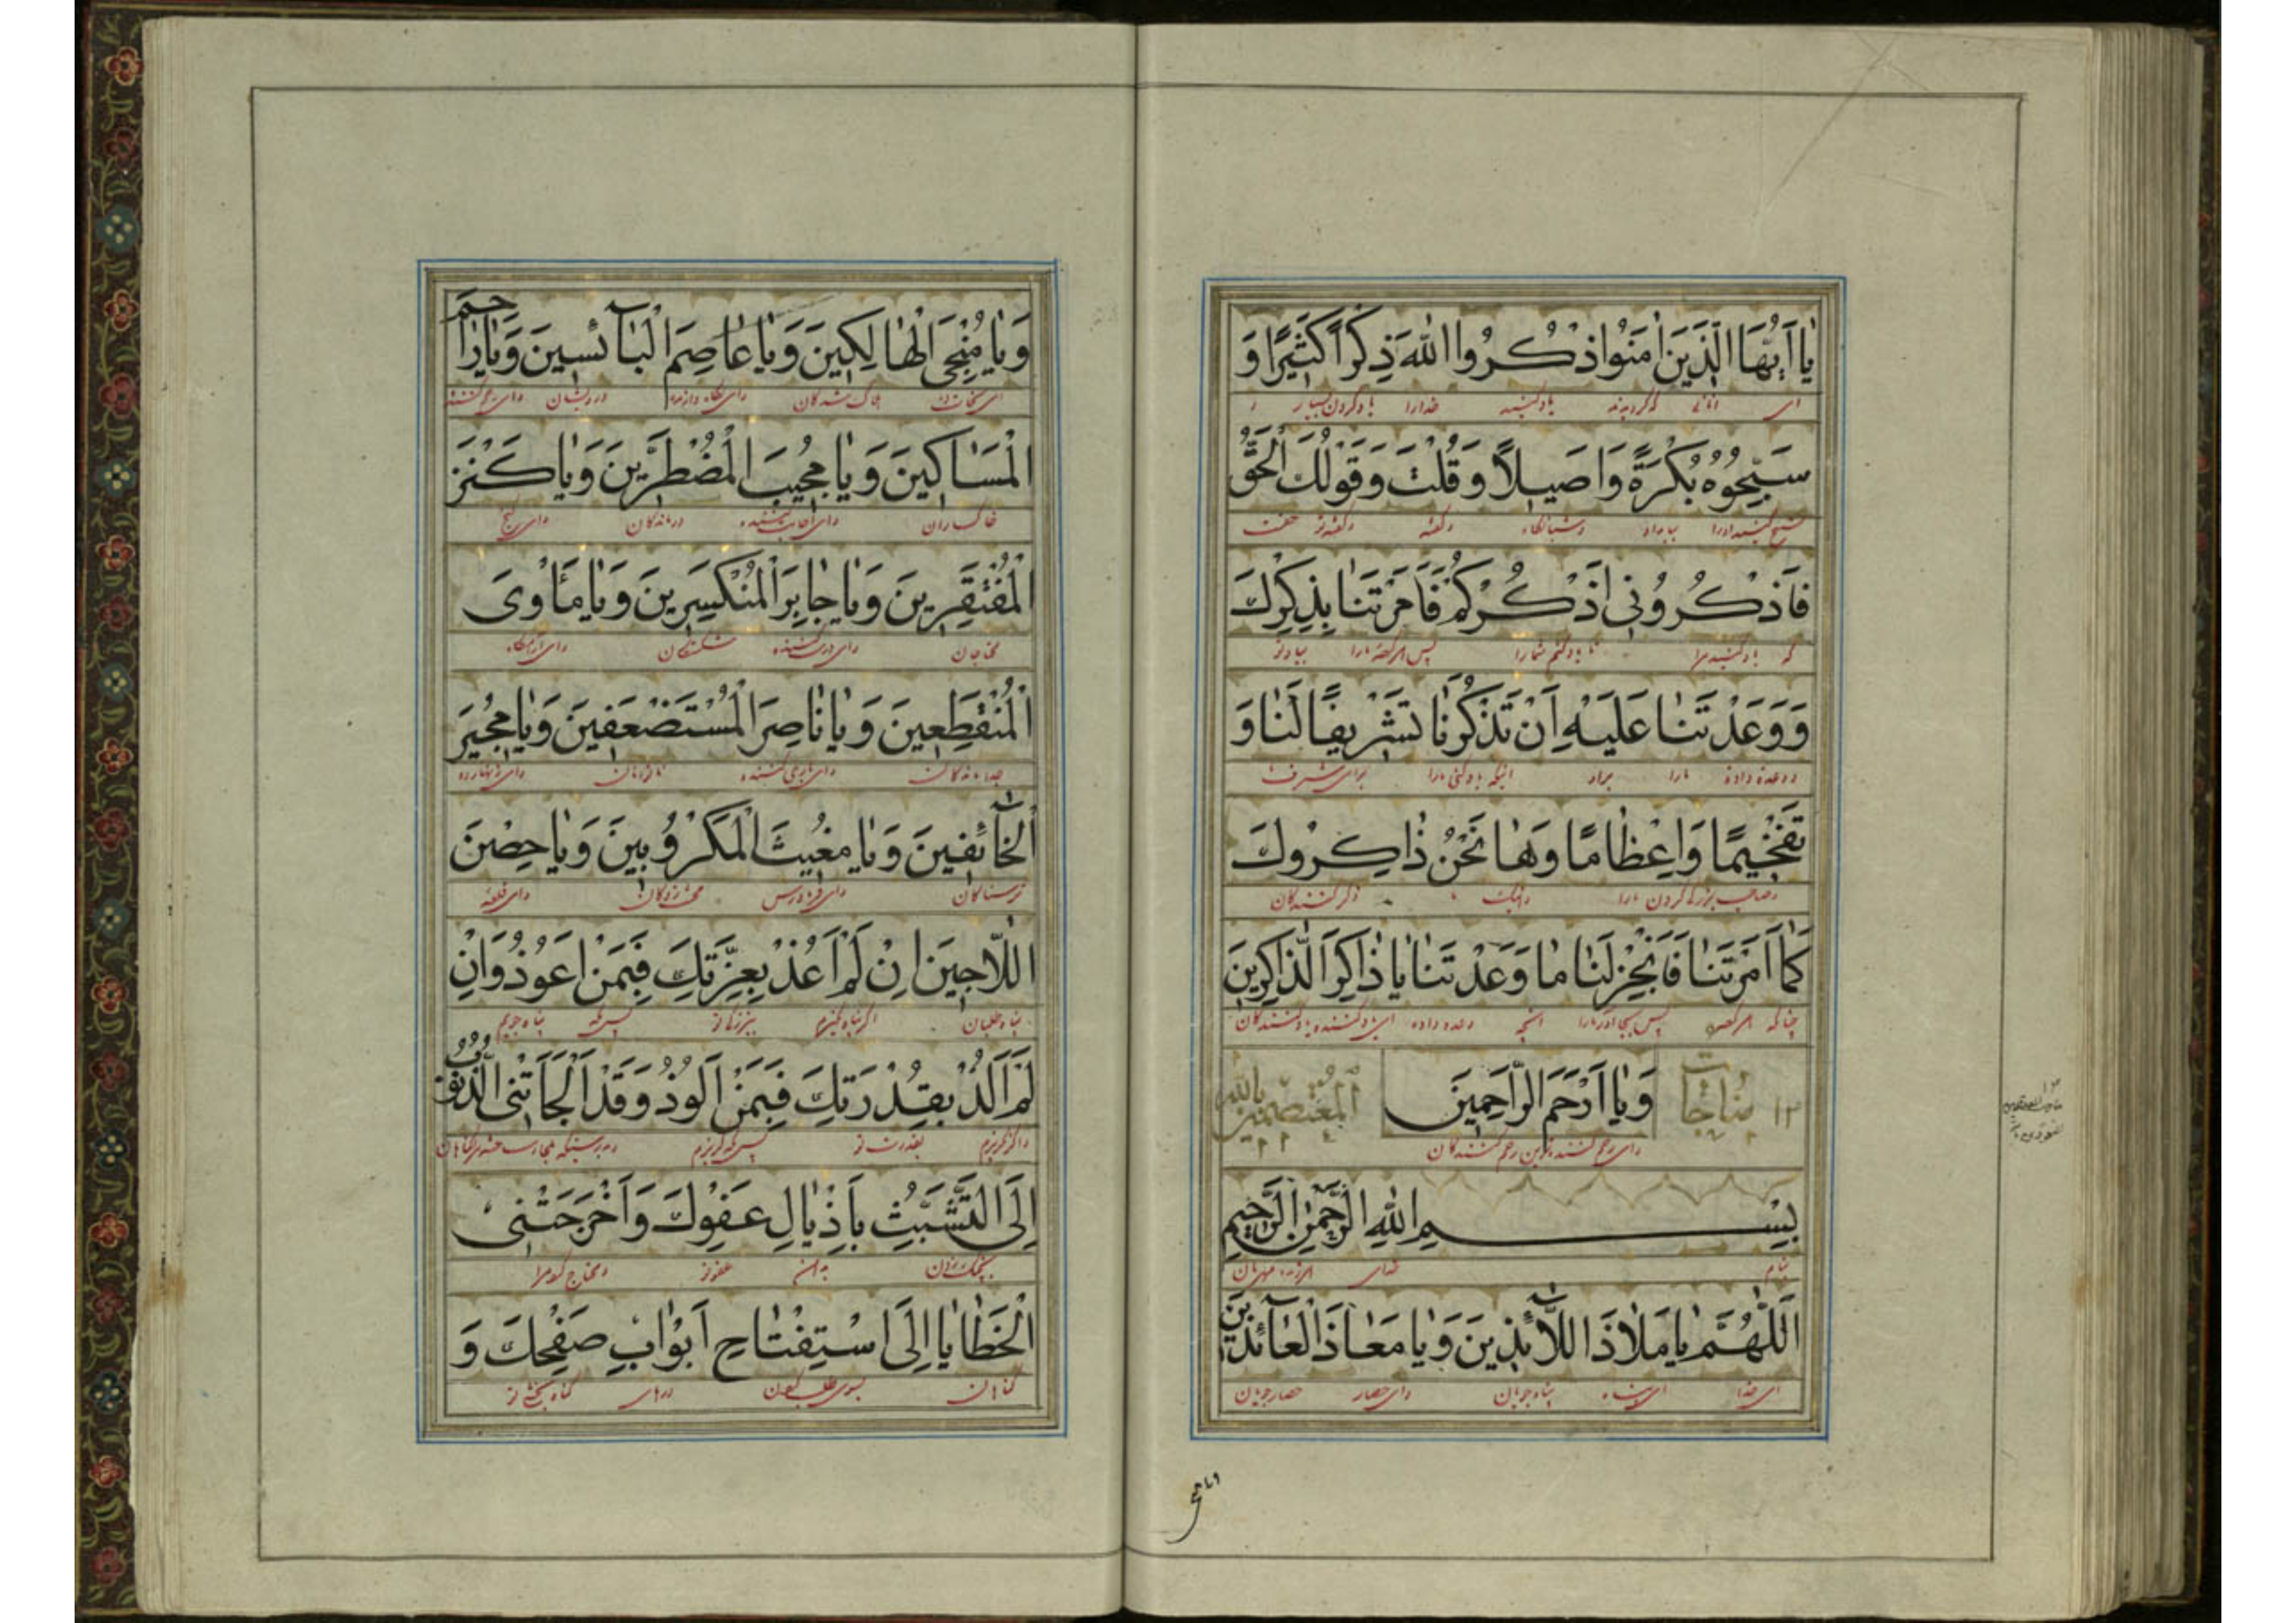 يٰا اَيُّهَا الَّذينَ اٰمَنُوا اذْكُرُوا اللّٰهَ ذِكْراً كَثيرًا وَ
اى كه گرديدند ياد كنيد خدا را ياد كردن بسيار و
سَبِّحُوهُ بُكْرَةً وَاَصيلاً وَقُلْتَ وَقَوْلُكَ الْحَقُّ
تسبيح كنيد او را بامداد و شبانگاه و گفته و گفته تو حقست
فَاذْكُرُونى اَذْكُرْكُمْ فَاَمَرْتَنٰا بِذِكْرِكَ
كه ياد كنيد مرا تا ياد كنم شما را پس امر كرده ما را بياد تو
وَوَعَدْتَنٰا عَلَيْهِ اَنْ تَذْكُرَنٰا تَشْريفًا لَنٰا وَ
و وعده داده ما را براو اينكه ياد كنى ما را براى شرف
تَفْخيمًا وَاِعْظٰامًا وَهٰا نَحْنُ ذٰاكِرُوكَ
ما را ذكر كنندگان
كَمٰا اَمَرْتَنٰا فَاَنْجِزْ لَنٰا مٰا وَعَدْتَنٰا يٰا ذٰاكِرَ الذّٰاكِرينَ
چنانكه پس ما را آنچه وعده داده اى ياد كننده ياد كنندگان
۱۲ مناجات وَيٰا اَرْحَمَ الرّٰاحِمينَ المعتصمين بالله
واى رحم كننده ترين رحم كنندگان
بِسْمِ اللّٰهِ الرَّحْمٰنِ الرَّحيمِ
بنام خداى مهربان
اَللّٰهُمَّ يٰا مَلاٰذَ اللّآئِذينَ وَيٰا مَعٰاذَ الْعٰآئِذينَ
اى خدا اى پناه پناه جويان واى حصار حصار جويان
وَيٰا مُنْجِىَ الْهٰالِكينَ وَيٰا عٰاصِمَ الْبٰآئِسينَ وَيٰا رٰاحِمَ
هلاك شدگان واى نگاه دارنده درويشان واى رحم كننده
الْمَسٰاكينَ وَيٰا مُجيبَ الْمُضْطَرّينَ وَيٰا كَنْزَ
خاكساران واى اجابت كننده درماندگان واى گنج
الْمُفْتَقِرينَ وَيٰا جٰابِرَ الْمُنْكَسِرينَ وَيٰا مَأْوَى
محتاجان واى درست كننده شكستگان واى آرامگاه
الْمُنْقَطِعينَ وَيٰا نٰاصِرَ الْمُسْتَضْعَفينَ وَيٰا مُجيرَ
جدا ماندگان واى يارى كننده ناتوانان واى زنهار ده
الْخٰآئِفينَ وَيٰا مُغيثَ الْمَكْرُوبينَ وَيٰا حِصْنَ
ترسناكان واى فريادرس محنت زدگان واى قلعه
اللّاٰجينَ اِنْ لَمْ اَعُذْ بِعِزَّتِكَ فَبِمَنْ اَعُوذُ وَاِنْ
پناه طلبان اگر پناه نگيرم پس بكه پناه جويم
لَمْ اَلُذْ بِقُدْرَتِكَ فَبِمَنْ اَلُوذُ وَقَدْ اَلْجَأَتْنِى الذُّنُوبُ
واگر نگريزم بقدرت تو پس بكه گريزم
اِلَى التَّشَبُّثِ بِاَذْيٰالِ عَفْوِكَ وَاَحْوَجَتْنِى
عفو تو ومحتاج كرد مرا
الْخَطٰايٰا اِلَى اسْتِفْتٰاحِ اَبْوٰابِ صَفْحِكَ وَ
گناهان بسوى طلب درهاى